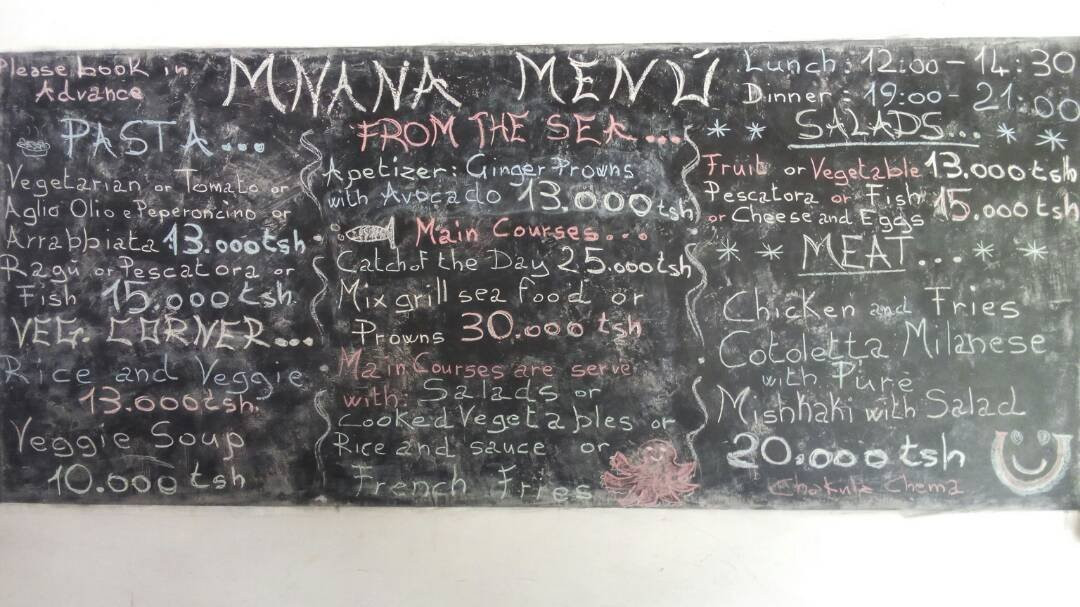 Please book in
Advance
MNANA MENÙ
Lunch: 12:00 - 14:30
Dinner: 19:00 - 21:00
PASTA...
Vegetarian or Tomato or
Aglio Olio e Peperoncino or
Arrabbiata 13.000 tsh
Ragù or Pescatora or
Fish 15.000 tsh.
VEG. CORNER...
Rice and Veggie
13.000 tsh.
Veggie Soup
10.000 tsh
FROM THE SEA...
Apetizer: Ginger Prowns
with Avocado 13.000 tsh
Main Courses...
Catch of the Day 25.000 tsh
Mix grill sea food or
Prowns 30.000 tsh
Main Courses are serve
with: Salads or
Cooked Vegetables or
Rice and sauce or
French Fries
SALADS...
Fruit or Vegetable 13.000 tsh
Pescatora or Fish
or Cheese and Eggs 15.000 tsh
MEAT...
Chicken and Fries
Cotoletta Milanese
with Purè
Mishkaki with Salad
20.000 tsh
Chakula Chema